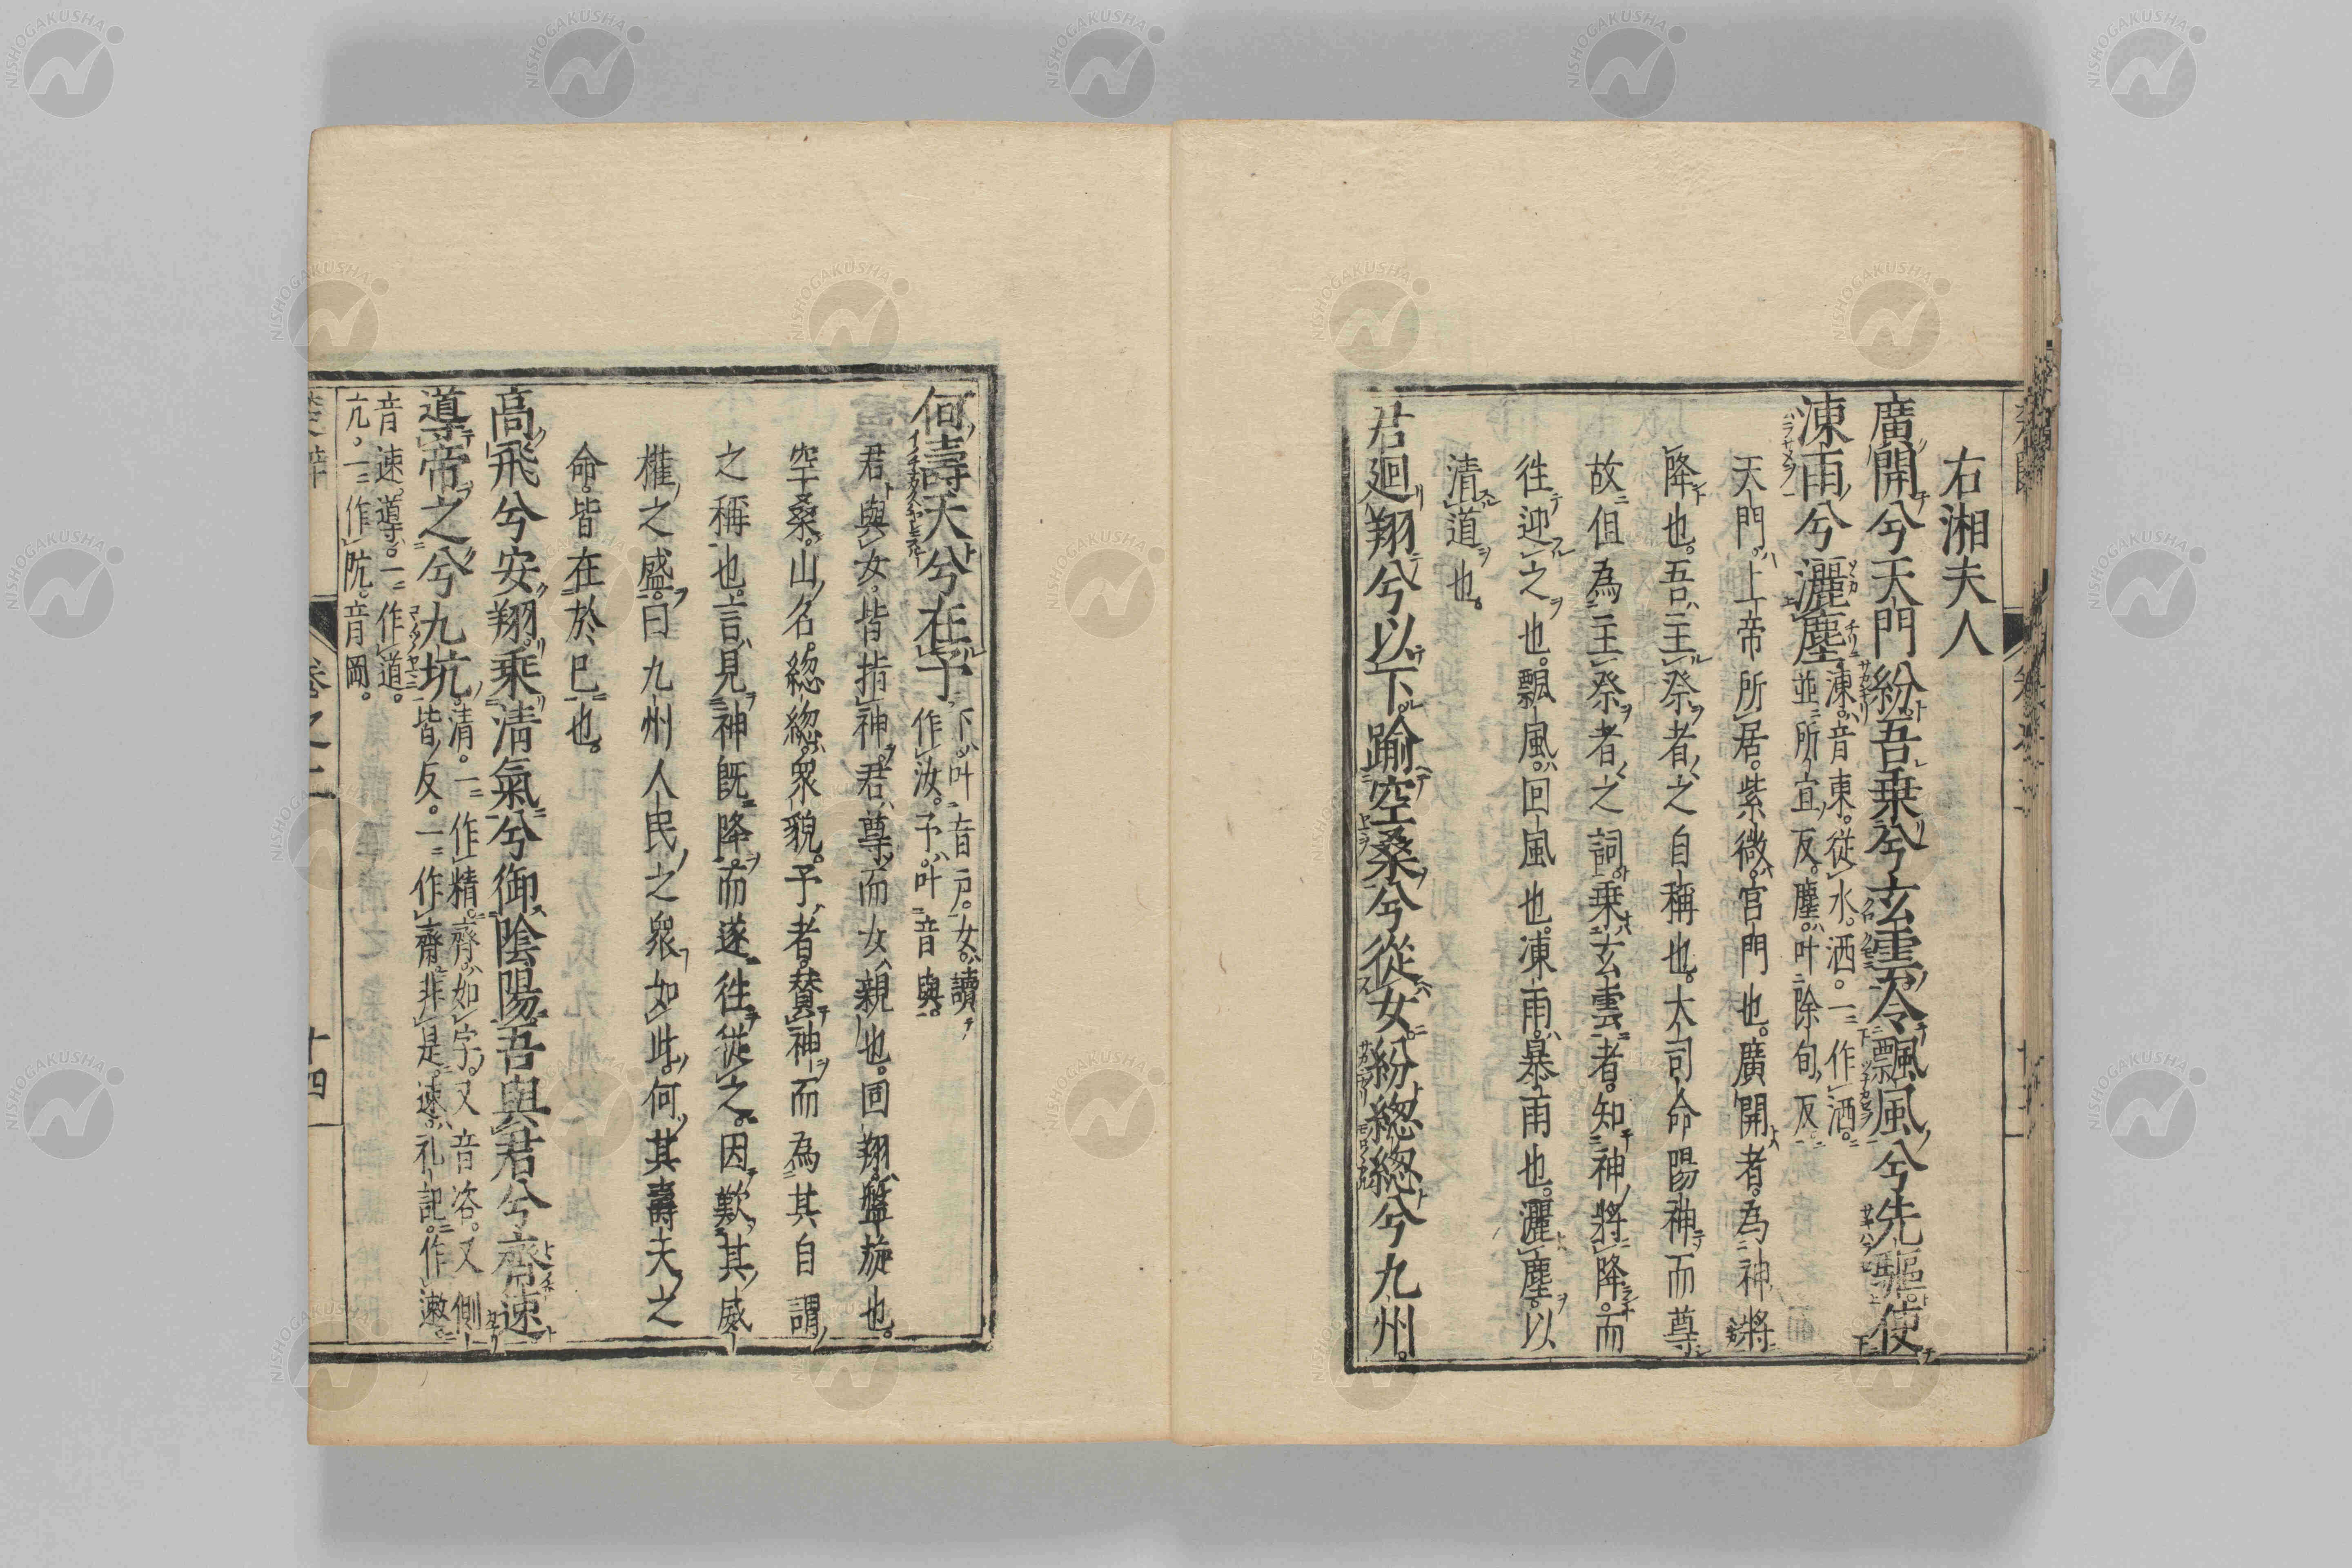 右湘夫人
廣開兮天門紛吾乗兮玄雲令飄風兮先驅使
涷雨兮灑塵
涷音東從水洒一作洒
並所宜反塵叶除旬反
天門上帝所居紫微宮門也廣開者為神將
降也吾主祭者之自稱也大司命陽神而尊
故但為主祭者之詞乗玄雲者知神將降而
往迎之也飄風回風也凍雨暴雨也灑塵以
清道也
君廻翔兮以下踰空桑兮從女紛緫緫兮九州
何壽夭兮在予
下叶音戸女讀
作汝予叶音與
君與女皆指神君尊而女親也囬翔盤旋也
空桑山名緫緫衆貌予者賛神而為其自謂
之稱也言見神既降而遂往從之因歎其威
權之盛曰九州人民之衆如此何其壽夭之
命皆在於已也
高飛兮安翔乘淸氣兮御陰陽吾與君兮齋速
導帝之兮九坑
清一作精齋如字又音咨又側
皆反一作齊非是速礼記作遬
音速導一作道
亢一作阬音岡
楚辭 卷之二 十四
NISHOGAKUSHA